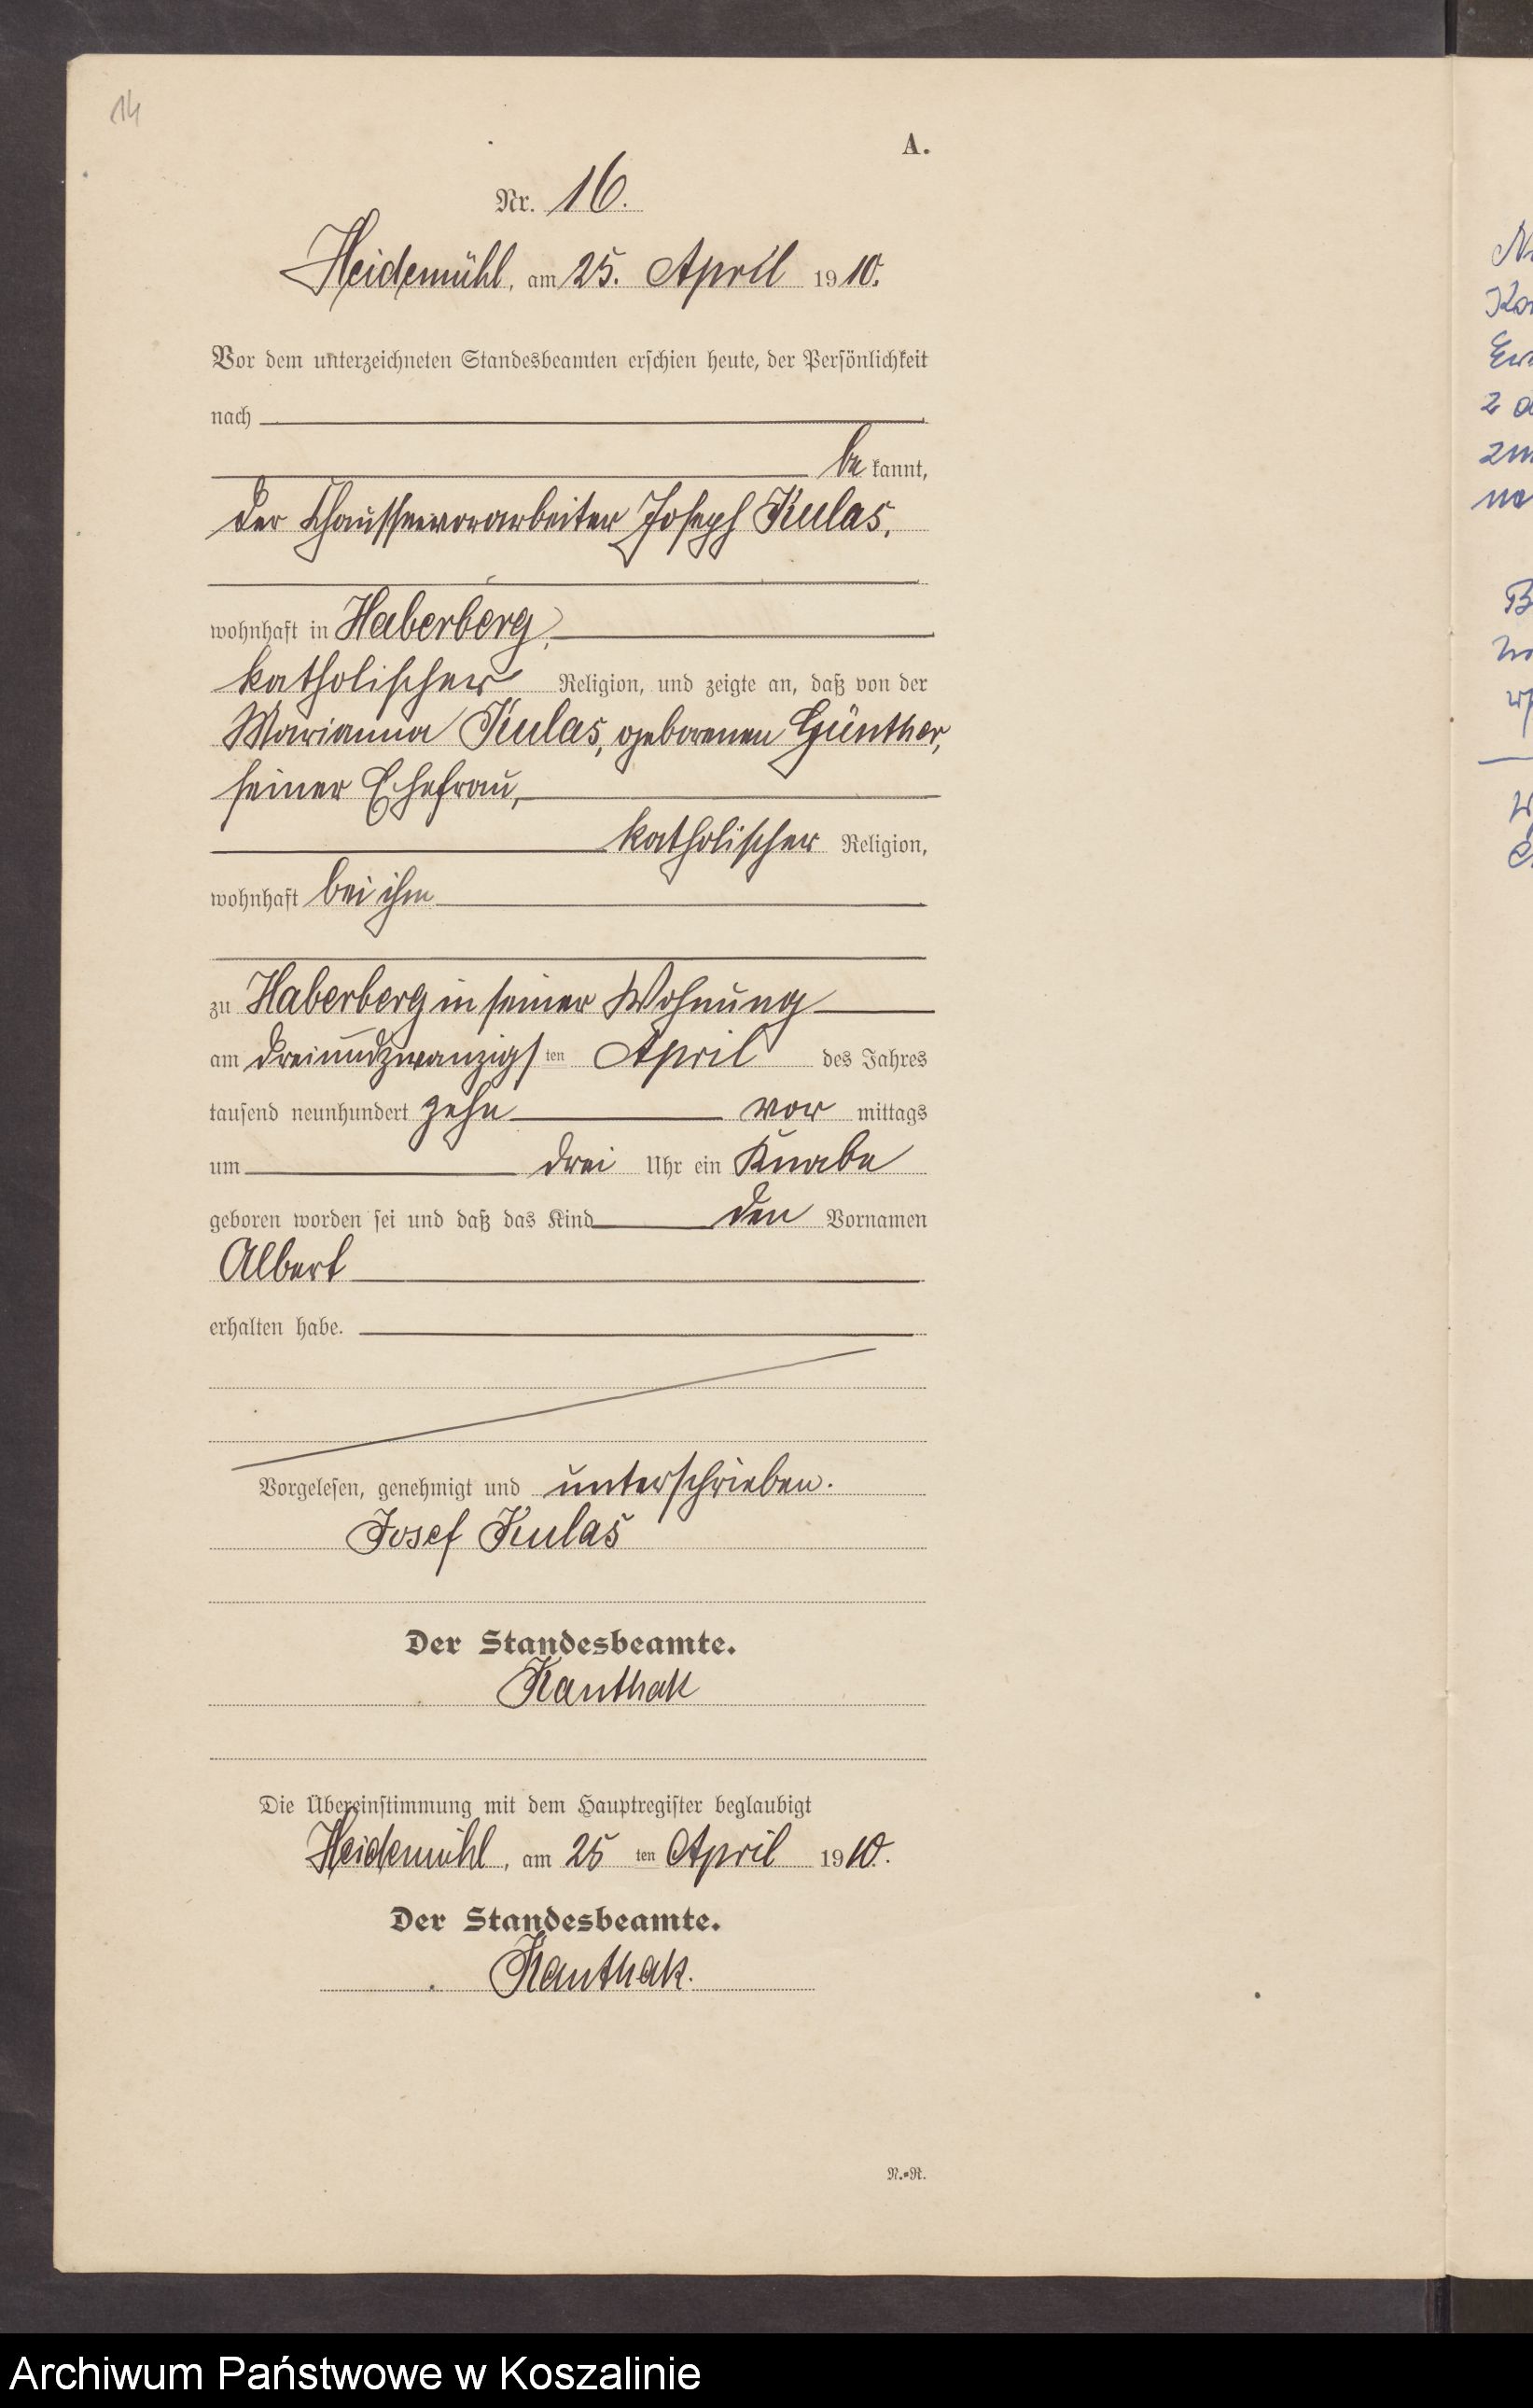 14
A.
Nr. 16.
Heidemühl, am 25. April 1910.
Vor dem unterzeichneten Standesbeamten erschien heute, der Persönlichkeit
nach
be kannt,
der Chausseevorarbeiter Joseph Kulas,
wohnhaft in Haberberg,
katholischer Religion, und zeigte an, daß von der
Marianna Kulas, geborenen Günther,
seiner Ehefrau,
katholischer Religion,
wohnhaft bei ihm
zu Haberberg in seiner Wohnung
am dreiundzwanzigs ten April des Jahres
tausend neunhundert zehn vor mittags
um drei Uhr ein Knabe
geboren worden sei und daß das Kind den Vornamen
Albert
erhalten habe.
Vorgelesen, genehmigt und unterschrieben.
Josef Kulas
Der Standesbeamte.
Kanthak
Die Übereinstimmung mit dem Hauptregister beglaubigt
Heidemühl, am 25 ten April 1910.
Der Standesbeamte.
Kanthak.
N.=R.
Archiwum Państwowe w Koszalinie